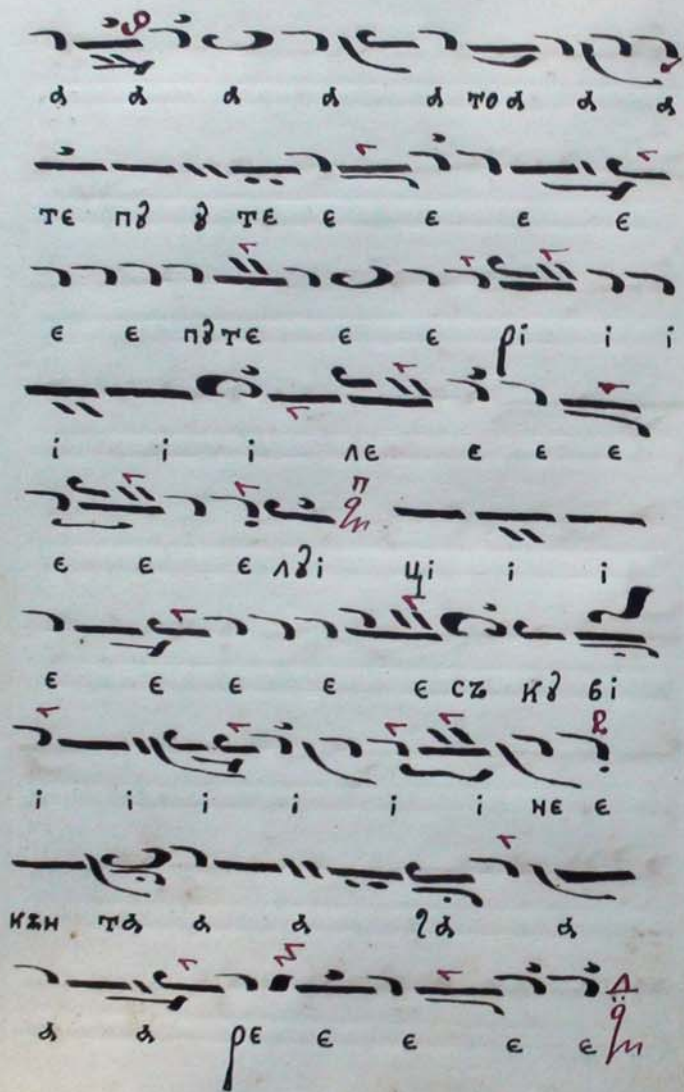 а а а а а то а а а
те пꙋ ꙋ те е е е е
е е пꙋ те е е рі і і
і і і ле е е е
е е е лꙋі ці і і
е е е е е съ кꙋ ві
і і і і і і не е
кѫн та а а а
а а ре е е е е